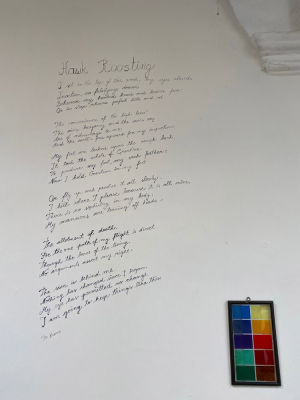 Hawk Roosting
I sit in the top of the wood, my eyes closed.
Inaction, no falsifying dream
Between my hooked head and hooked feet
Or in sleep rehearse perfect kills and eat
The convenience of the high trees!
The air's buoyancy and the sun's ray
Are of advantage to me
And the earth's face upward for my inspection
My feet are locked upon the rough bark
It took the whole of Creation
To produce my foot, my each feather
Now I hold Creation in my foot
Or fly up and revolve it all slowly.
I kill where I please because it is all mine
There is no sophistry in my body.
My manners are tearing off heads -
The allotment of death.
For the one path of my flight is direct
Through the bones of the living
No arguments assert my right.
The sun is behind me
Nothing has changed since I began
My eye has permitted no change
I am going to keep things like this